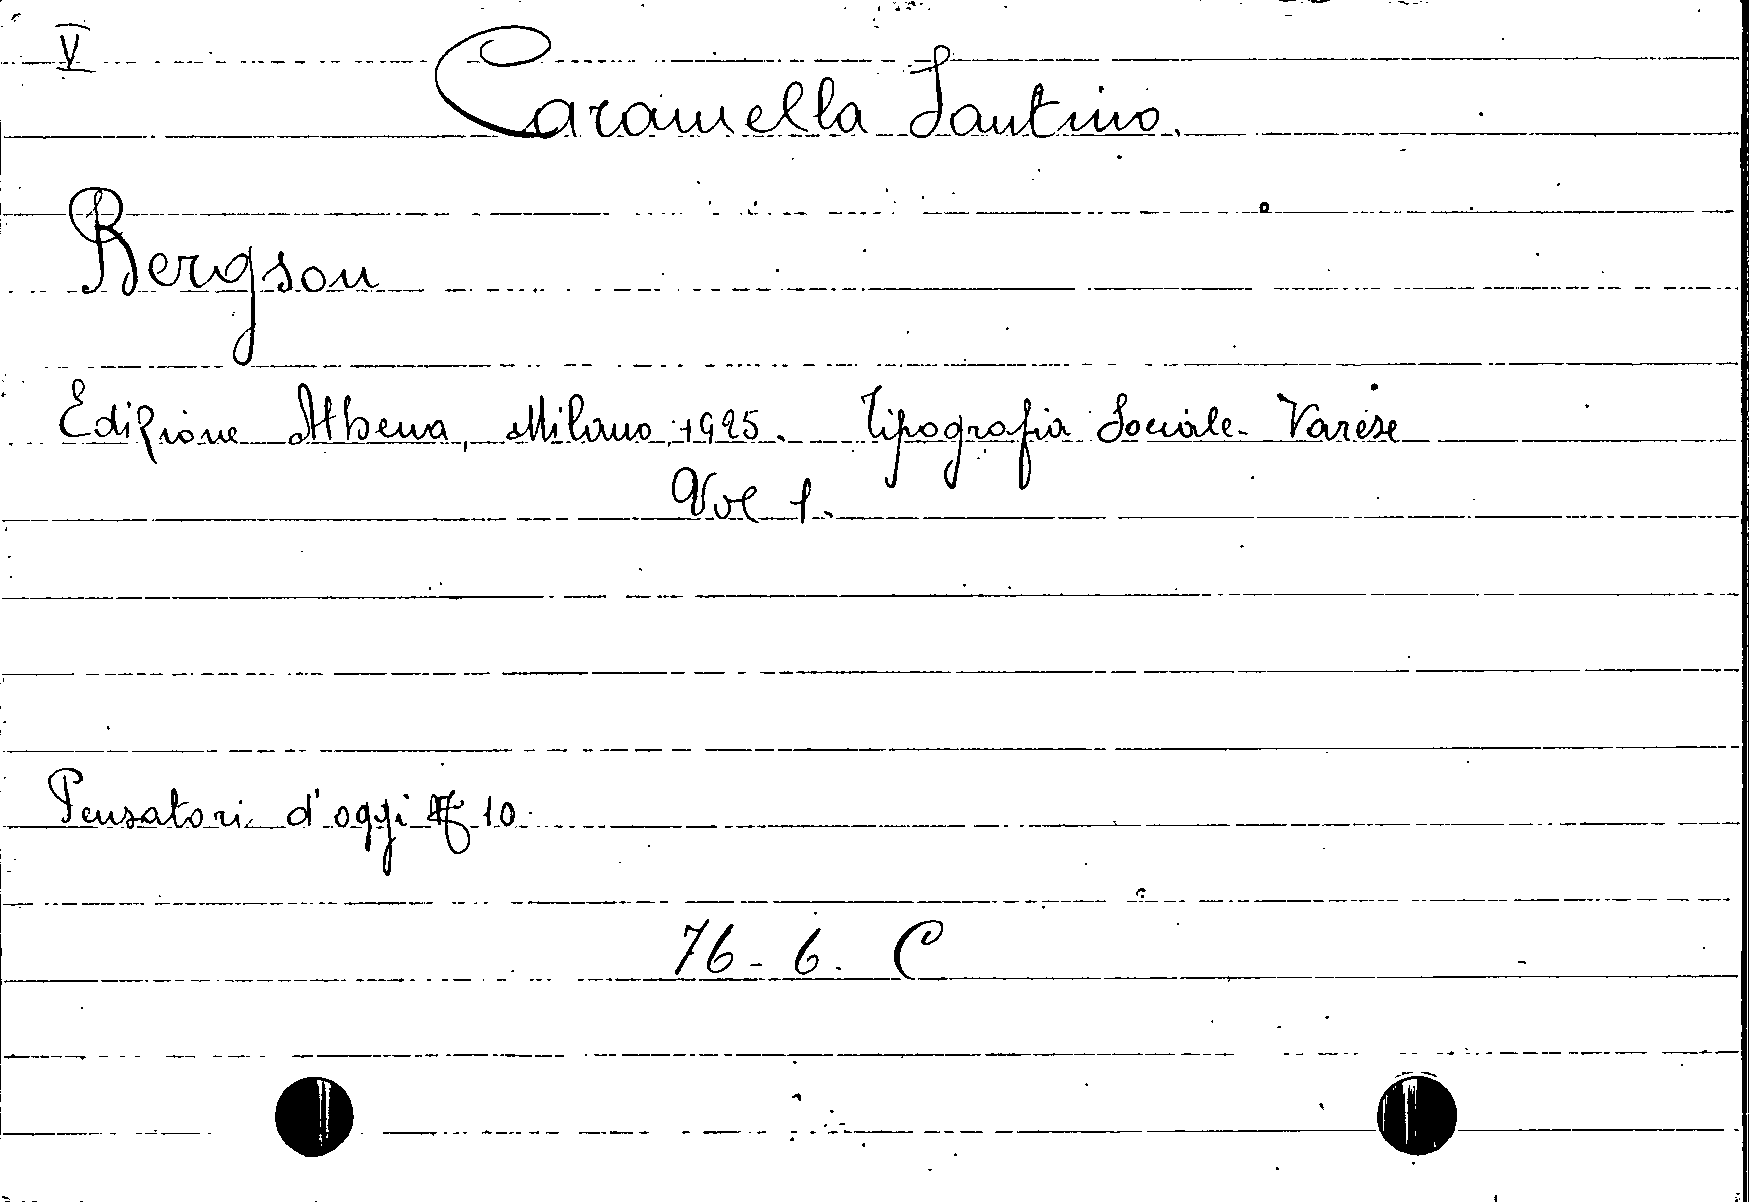 V
Caramella Santino.
Bergson
Edizione Athena, Milano, 1925. Tipografia Sociale - Varese
Vol 1.
Pensatori d'oggi 10
76 - 6. C